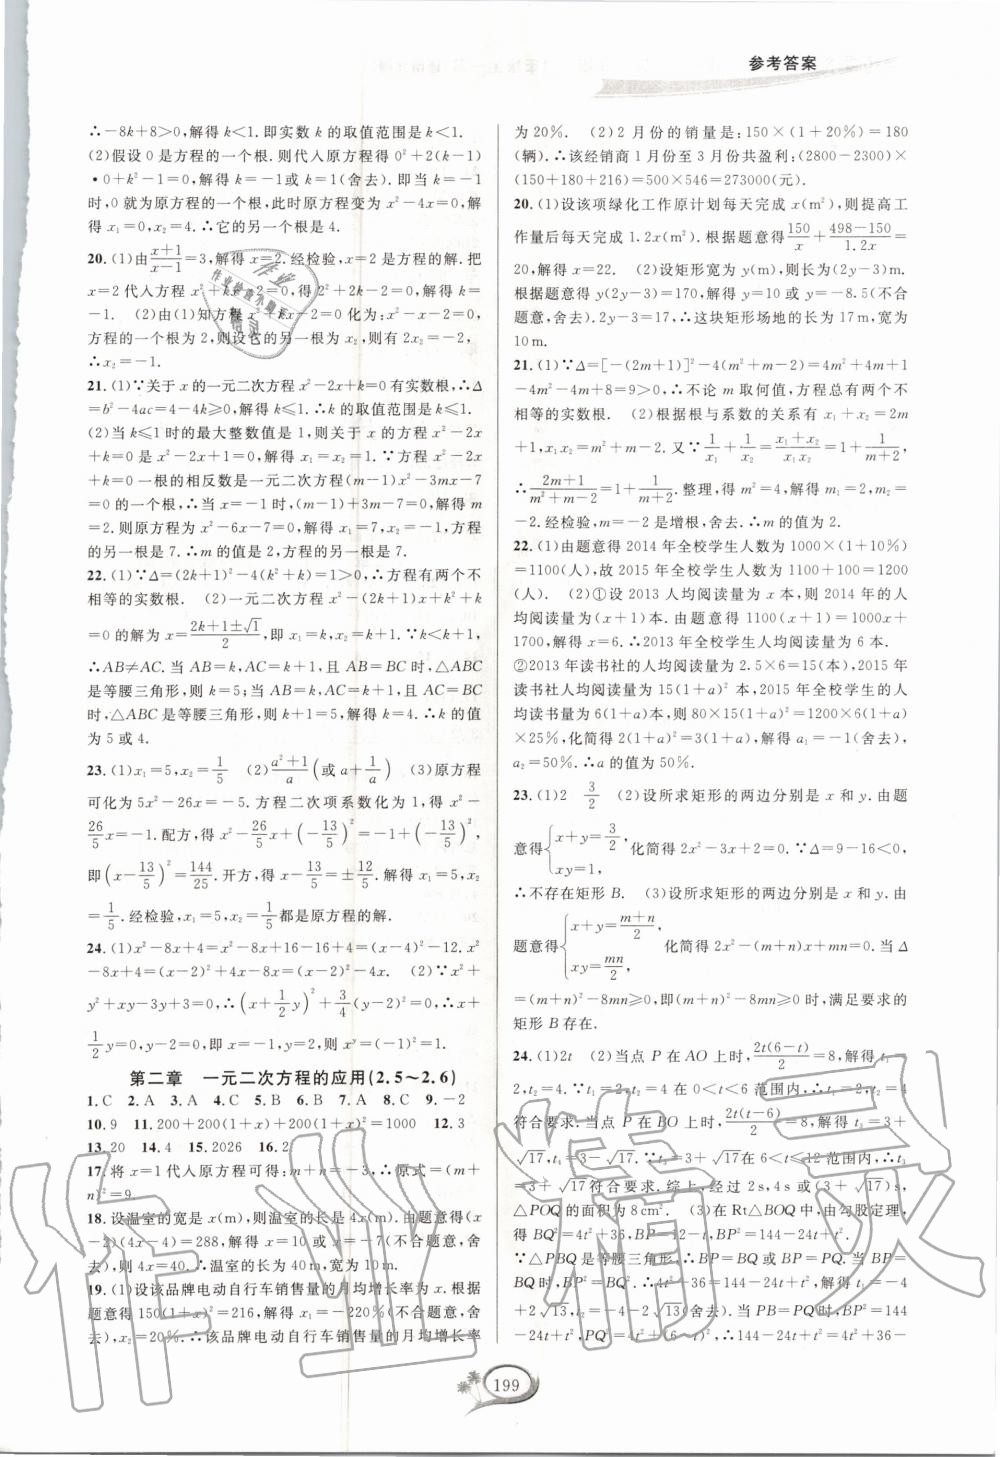 参考答案
∴-8k+8>0,解得k<1.即实数k的取值范围是k<1.
(2)假设0是方程的一个根.则代入原方程得0²+2(k-1)
·0+k²-1=0,解得k=-1或k=1(舍去).即当k=-1
时,0就为原方程的一个根,此时原方程变为x²-4x=0,解
得x₁=0,x₂=4.∴它的另一个根是4.
20.(1)由(x+1)/(x-1)=3,解得x=2.经检验,x=2是方程的解.把
x=2代入方程x²+kx-2=0,得2²+2k-2=0,解得k=
-1. (2)由(1)知方程x²+kx-2=0化为:x²-x-2=0,方
程的一个根为2,则设它的另一个根为x₂,则有2x₂=-2,
∴x₂=-1.
21.(1)∵关于x的一元二次方程x²-2x+k=0有实数根,∴Δ
=b²-4ac=4-4k≥0,解得k≤1.∴k的取值范围是k≤1.
(2)当k≤1时的最大整数值是1,则关于x的方程x²-2x
+k=0是x²-2x+1=0,解得x₁=x₂=1.∵方程x²-2x
+k=0一根的相反数是一元二次方程(m-1)x²-3mx-7
=0的一个根,∴当x=-1时,(m-1)+3m-7=0,解得m
=2.则原方程为x²-6x-7=0,解得x₁=7,x₂=-1,方程
的另一根是7.∴m的值是2,方程的另一根是7.
22.(1)∵Δ=(2k+1)²-4(k²+k)=1>0,∴方程有两个不
相等的实数根. (2)一元二次方程x²-(2k+1)x+k²+k
=0的解为x=(2k+1±√1)/2,即x₁=k,x₂=k+1.∵k<k+1,
∴AB≠AC.当AB=k,AC=k+1,且AB=BC时,△ABC
是等腰三角形,则k=5;当AB=k,AC=k+1,且AC=BC
时,△ABC是等腰三角形,则k+1=5,解得k=4.∴k的值
为5或4.
23.(1)x₁=5,x₂=1/5 (2)(a²+1)/a(或a+1/a) (3)原方程
可化为5x²-26x=-5.方程二次项系数化为1,得x²-
26/5x=-1.配方,得x²-26/5x+(-13/5)²=-1+(-13/5)²,
即(x-13/5)²=144/25.开方,得x-13/5=±12/5.解得x₁=5,x₂
=1/5.经检验,x₁=5,x₂=1/5都是原方程的解.
24.(1)x²-8x+4=x²-8x+16-16+4=(x-4)²-12.x²
-8x+4=(x-2)²+4x-8x=(x-2)²-4x. (2)∵x²+
y²+xy-3y+3=0,∴(x+1/2y)²+3/4(y-2)²=0,∴x+
1/2y=0,y-2=0,∴x=-1,y=2,则xʸ=(-1)²=1.
第二章 一元二次方程的应用(2.5~2.6)
1.C 2.A 3.A 4.C 5.B 6.B 7.A 8.C 9.-2
10.9 11.200+200(1+x)+200(1+x)²=1000 12.3
13.20 14.4 15.2026 16.2
17.将x=1代入原方程可得:m+n=-3,∴原式=(m+
n)²=9.
18.设温室的宽是x(m),则温室的长是4x(m).由题意得(x
-2)(4x-4)=288,解得x=10或x=-7(不合题意,舍
去),则4x=40.∴温室的长为40m,宽为10m.
19.(1)设该品牌电动自行车销售量的月均增长率为x.根据
题意得150(1+x)²=216,解得x₁=-220%(不合题意,舍
去),x₂=20%.∴该品牌电动自行车销售量的月均增长率
为20%. (2)2月份的销量是:150×(1+20%)=180
(辆).∴该经销商1月份至3月份共盈利:(2800-2300)×
(150+180+216)=500×546=273000(元).
20.(1)设该项绿化工作原计划每天完成x(m²),则提高工
作量后每天完成1.2x(m²).根据题意得150/x+(498-150)/1.2x=
14,解得x=22. (2)设矩形宽为y(m),则长为(2y-3)m.
根据题意得y(2y-3)=170,解得y=10或y=-8.5(不合
题意,舍去).2y-3=17,∴这块矩形场地的长为17m,宽为
10m.
21.(1)∵Δ=[-(2m+1)]²-4(m²+m-2)=4m²+4m+1
-4m²-4m+8=9>0,∴不论m取何值,方程总有两个不
相等的实数根. (2)根据根与系数的关系有x₁+x₂=2m
+1,x₁x₂=m²+m-2.又∵1/x₁+1/x₂=(x₁+x₂)/x₁x₂=1+1/(m+2),
∴(2m+1)/(m²+m-2)=1+1/(m+2).整理,得m²=4,解得m₁=2,m₂=
-2.经检验,m=-2是增根,舍去.∴m的值为2.
22.(1)由题意得2014年全校学生人数为1000×(1+10%)
=1100(人),故2015年全校学生人数为1100+100=1200
(人). (2)①设2013人均阅读量为x本,则2014年的人
均阅读量为(x+1)本.由题意得1100(x+1)=1000x+
1700,解得x=6.∴2013年全校学生人均阅读量为6本.
②2013年读书社的人均阅读量为2.5×6=15(本),2015年
读书社人均阅读量为15(1+a)²本,2015年全校学生的人
均读书量为6(1+a)本,则80×15(1+a)²=1200×6(1+a)
×25%,化简得2(1+a)²=3(1+a),解得a₁=-1(舍去),
a₂=50%.∴a的值为50%.
23.(1)2 3/2 (2)设所求矩形的两边分别是x和y.由题
意得{x+y=3/2, xy=1, 化简得2x²-3x+2=0.∵Δ=9-16<0,
∴不存在矩形B. (3)设所求矩形的两边分别是x和y.由
题意得{x+y=(m+n)/2, xy=mn/2, 化简得2x²-(m+n)x+mn=0.当Δ
=(m+n)²-8mn≥0,即(m+n)²-8mn≥0时,满足要求的
矩形B存在.
24.(1)2t (2)当点P在AO上时,2t(6-t)/2=8,解得t₁=
2,t₂=4.∵t₁=2,t₂=4在0<t<6范围内,∴t₁=2,t₂=4
符合要求.当点P在BO上时,2t(t-6)/2=8,解得t₃=3+
√17,t₄=3-√17.∵t₃=3+√17在6<t≤12范围内,∴t₃
=3+√17符合要求.综上,经过2s,4s或(3+√17)s,
△POQ的面积为8cm². (3)在Rt△BOQ中,由勾股定理,
得BQ²=4t²+36,PB=12-t,PB²=144-24t+t².
∵△PBQ是等腰三角形,∴BP=BQ或BP=PQ.当BP=
BQ时,BP²=BQ²,∴4t²+36=144-24t+t²,解得t₁=-4
+2√13,t₂=-4-2√13(舍去).当PB=PQ时,BP²=144
-24t+t²,PQ²=4t²+36-
199